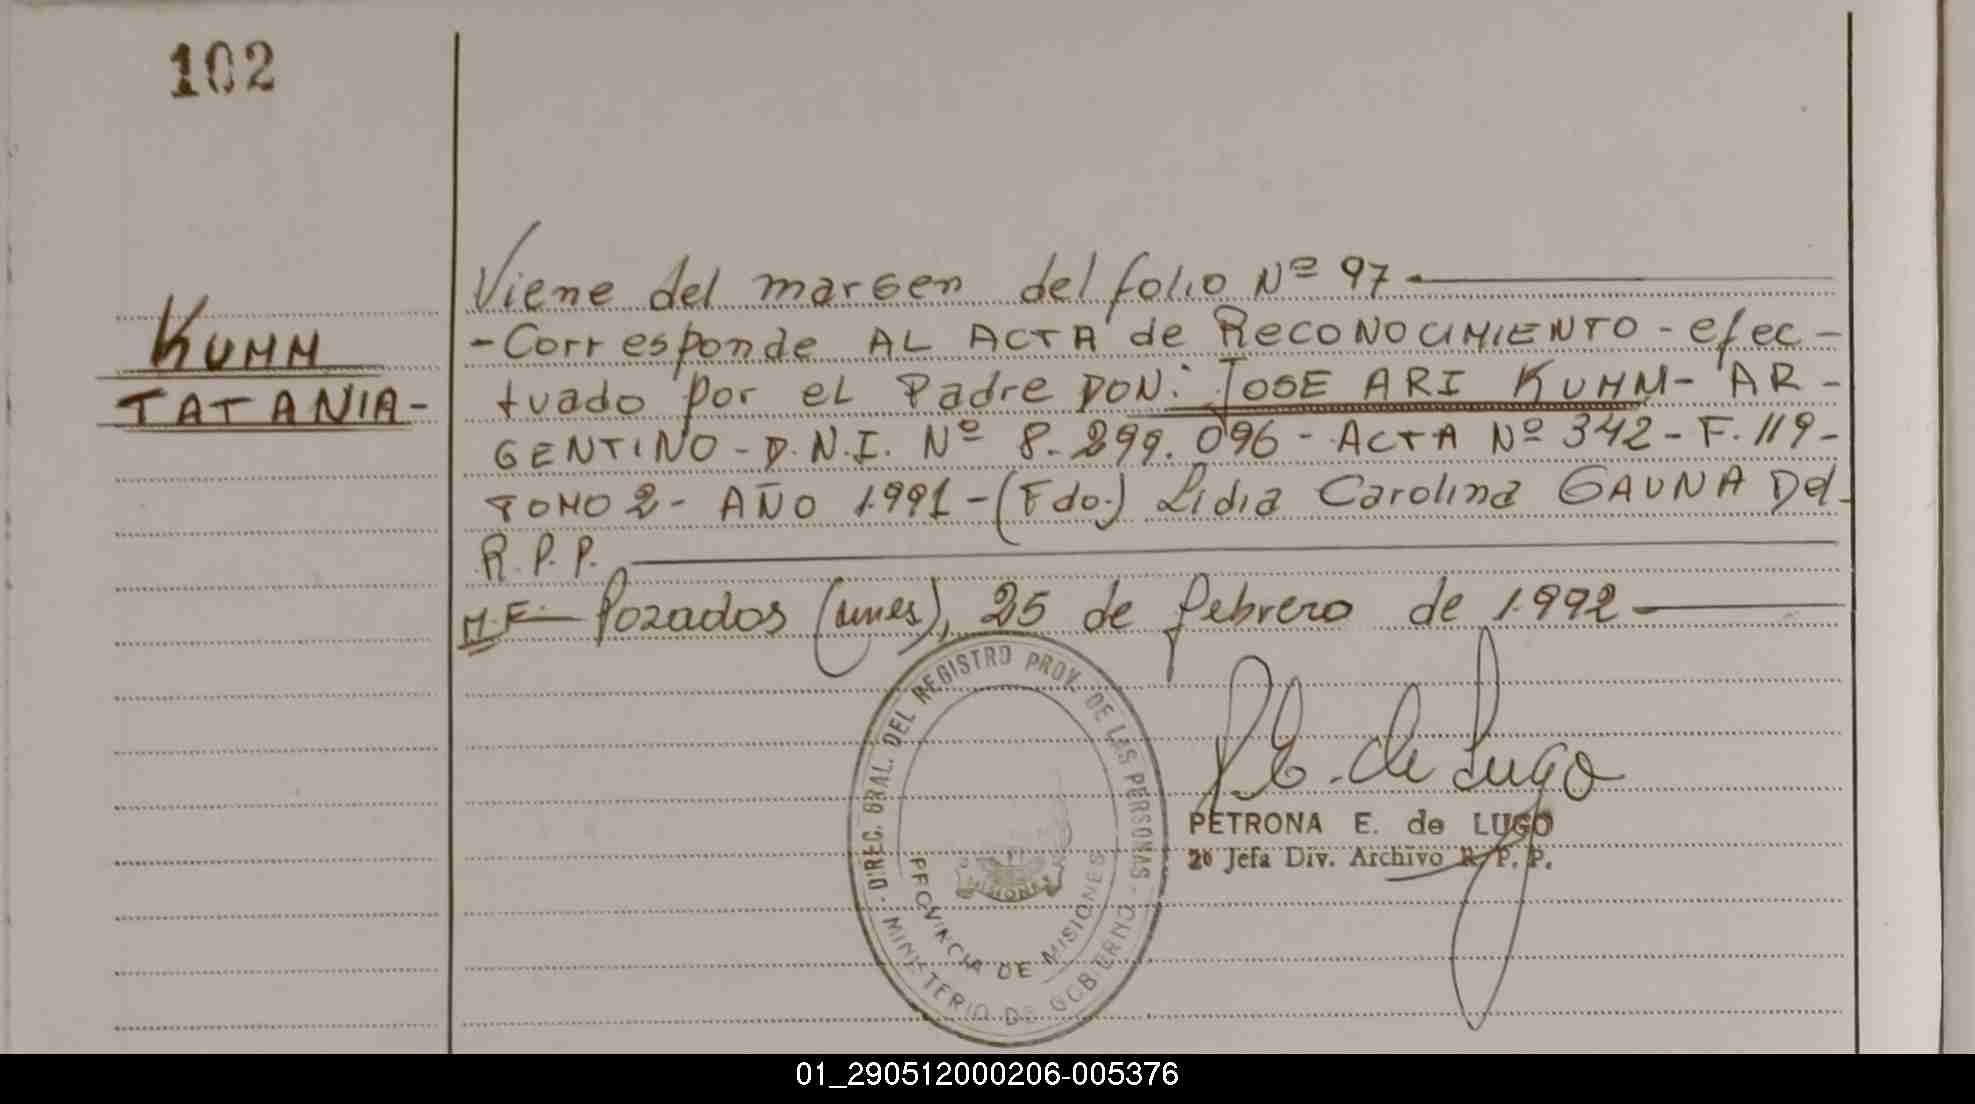 102
KUHM
TATANIA-
Viene del margen del folio Nº 97
- Corresponde AL ACTA de RECONOCIMIENTO - efec -
tuado por el Padre DON: JOSE ARI KUHM - AR -
GENTINO - D.N.I. Nº 8.299.096 - ACTA Nº 342 - F. 119 -
TOMO 2 - AÑO 1.991 - (Fdo.) Lidia Carolina GAUNA Del.
R.P.P.
M.E. Pozados (mnes), 25 de febrero de 1.992
P.E. de Lugo
PETRONA E. de LUGO
2º Jefa Div. Archivo R.P.P.
DIREC. GRAL. DEL REGISTRO PROV. DE LAS PERSONAS
MINISTERIO DE GOBIERNO
PROVINCIA DE MISIONES
MISIONES
01_290512000206-005376